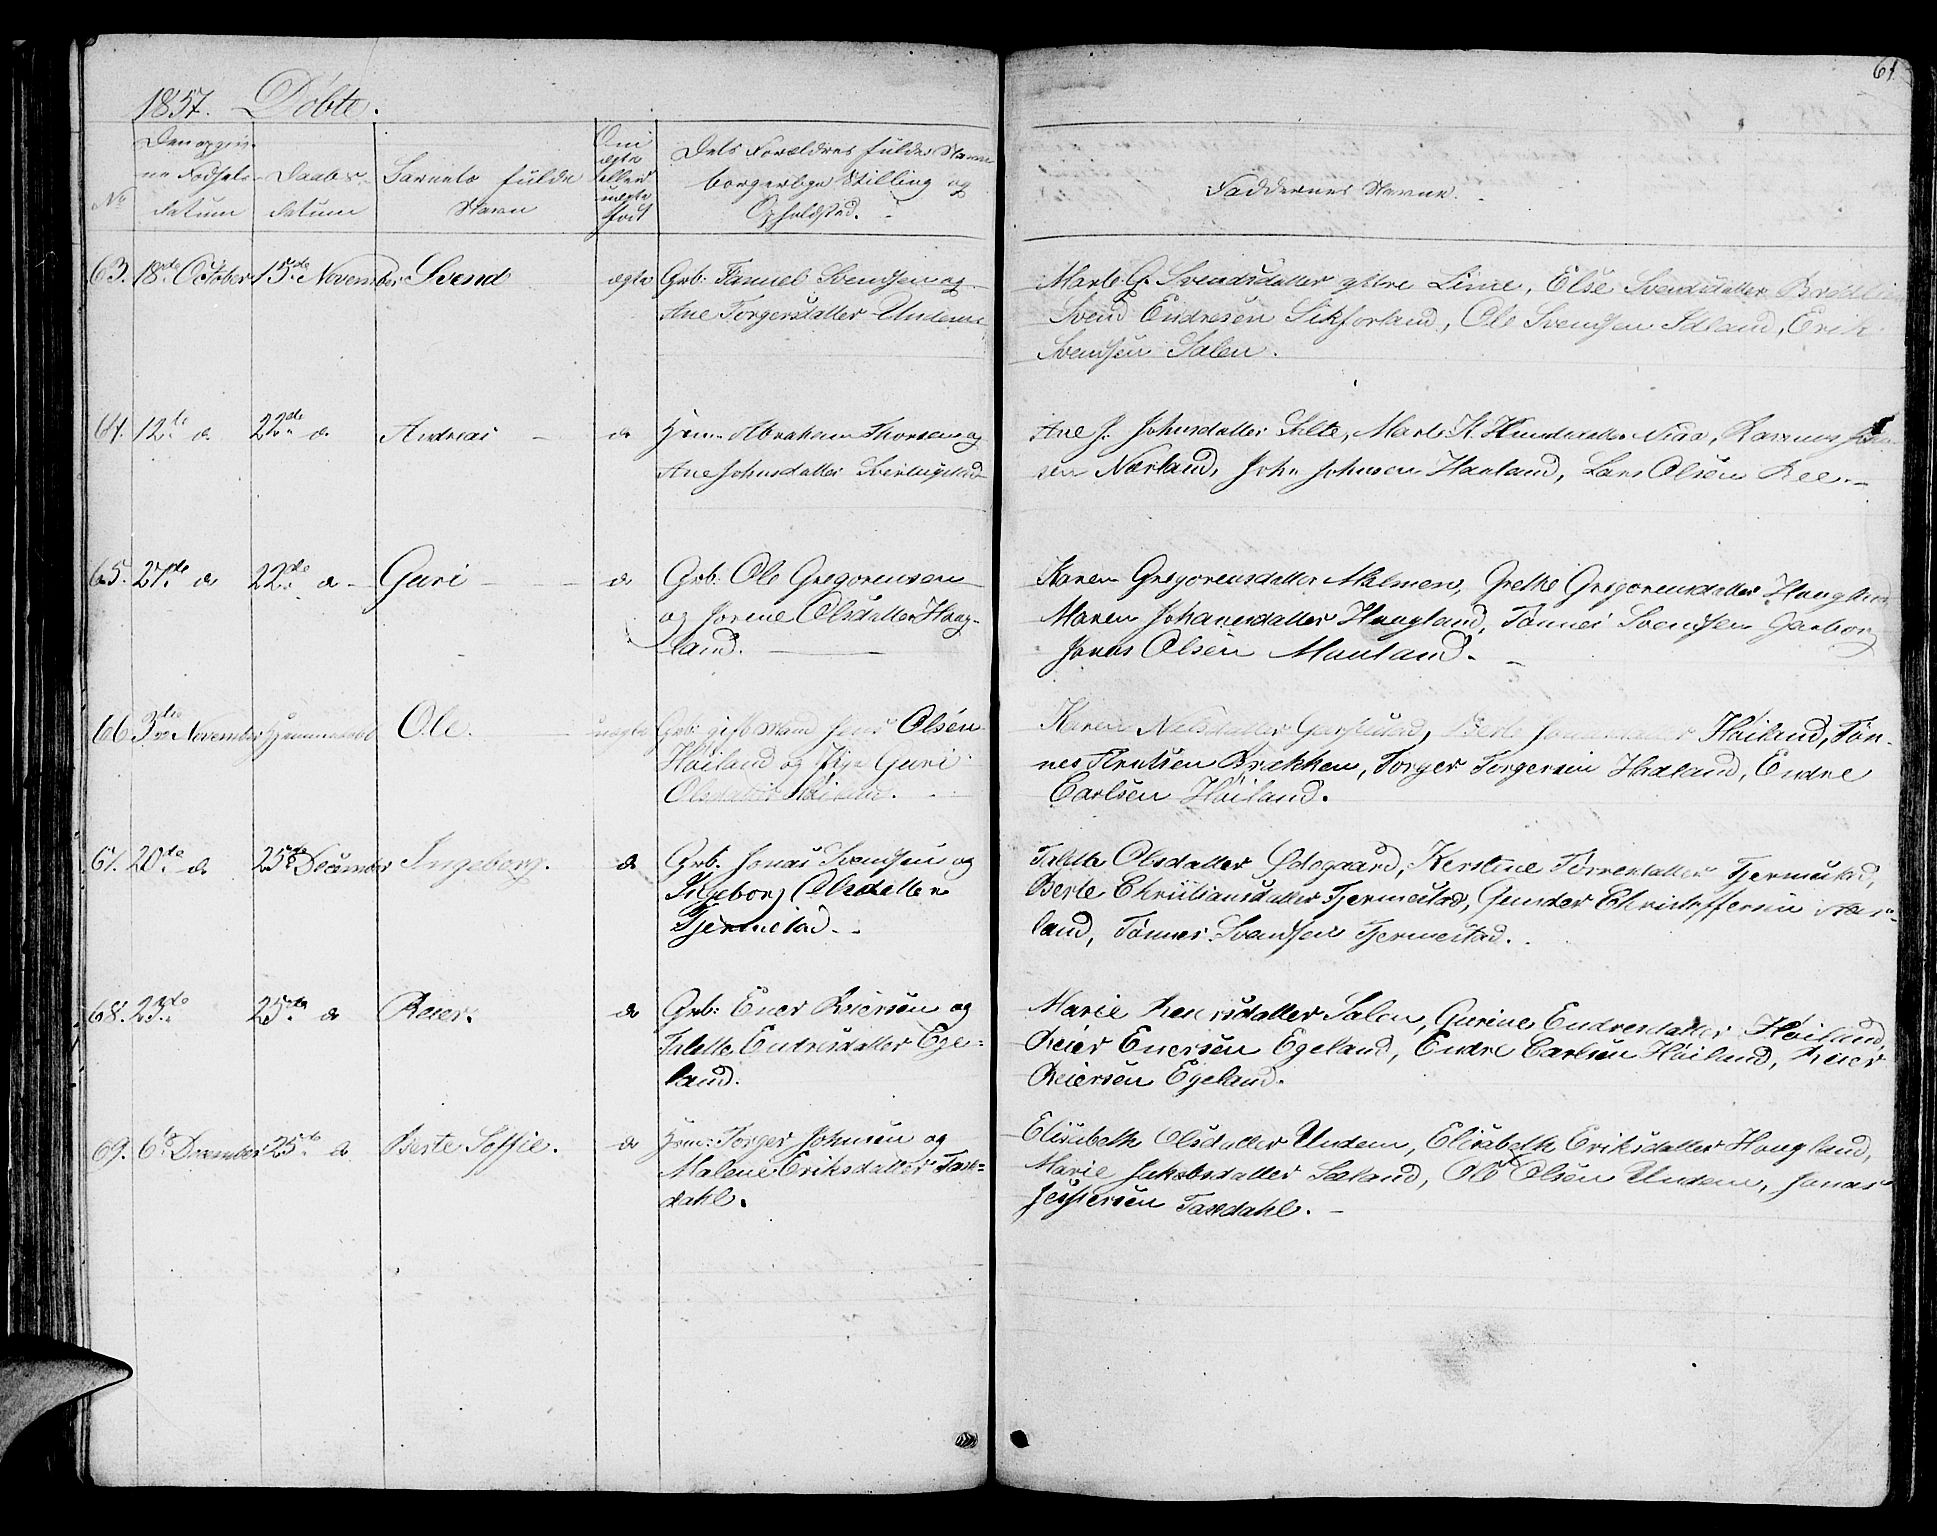 61
1857. Döbte.
No
Den opgiv-
ne Fødsels-
datum
Daabs-
datum
Barnets fulde
Navn
Om
ægte
eller
uægte
født
Dets Forældres fulde Navn
borgerlige Stilling og
Opholdsted.
Faddernes Navne.
63. 18de October 15de November Svend ægte Grb: Svendsen og
Ane Torgersdatter Undem
Marte G. Svendsdatter ystre Lime, Else Svendsdatter
Svend Endresen Sikforland, Ole Svendsen Idland, Erik
Svendsen Salen.
64. 12te d 22de d Andreas d Huusm. Abraham Thorsen og
Ane Johnsdatter
Ane J. Johnsdatter Marte K. Rasmus
sen Nærland, John Johnsen Haaland, Lars Olsen Ree.
65. 27de d 22de d Guri d Grb. Ole Gregoriusen
og Jorine Olsdatter Haug-
land.
Karen Gregoriusdatter Grethe Gregoriusdatter Haugland
Maren Johanesdatter Haugland, Tønnes Svendsen Garborg
Jonas Olsen Mauland.
66. 3die November Hjemmedøbt Ole. uægte Grb: gift Mand Jens Olsen
Høiland og Pige Guri
Olsdatter Høiland.
Karen Nielsdatter Berte Høiland, Tøn-
nes Knutsen Brekken, Torger Torgersen Hadland, Endre
Carlsen Høiland.
67. 20de d 25de December Ingeborg. d Grb. Jonas Svendsen og
Ingeborg Olsdatter
Tjermestad.
Talette Olsdatter Ødegaard, Kerstine Tørresdatter Tjermestad,
Berte Christiansdatter Tjermestad, Gunder Christoffersen
land, Tønnes Svendsen Tjermestad.
68. 23de 25de d Reier. d Grb: Ener Reiersen og
Talette Endresdatter Ege-
land.
Marie Reiersdatter Salen, Gurine Endresdatter Høiland,
Reier Enersen Egeland, Endre Carlsen Høiland, Reier
Reiersen Egeland.
69. 6te December 25de d Berte Soffie. d Huusm: Torger Johnsen og
Malene Eriksdatter Taks-
dahl.
Elisabeth Olsdatter Undem, Elisabeth Eriksdatter Haugland,
Marie Jakobsdatter Sæland, Ole Olsen Undem, Jonas
Jespersen Taxdahl.